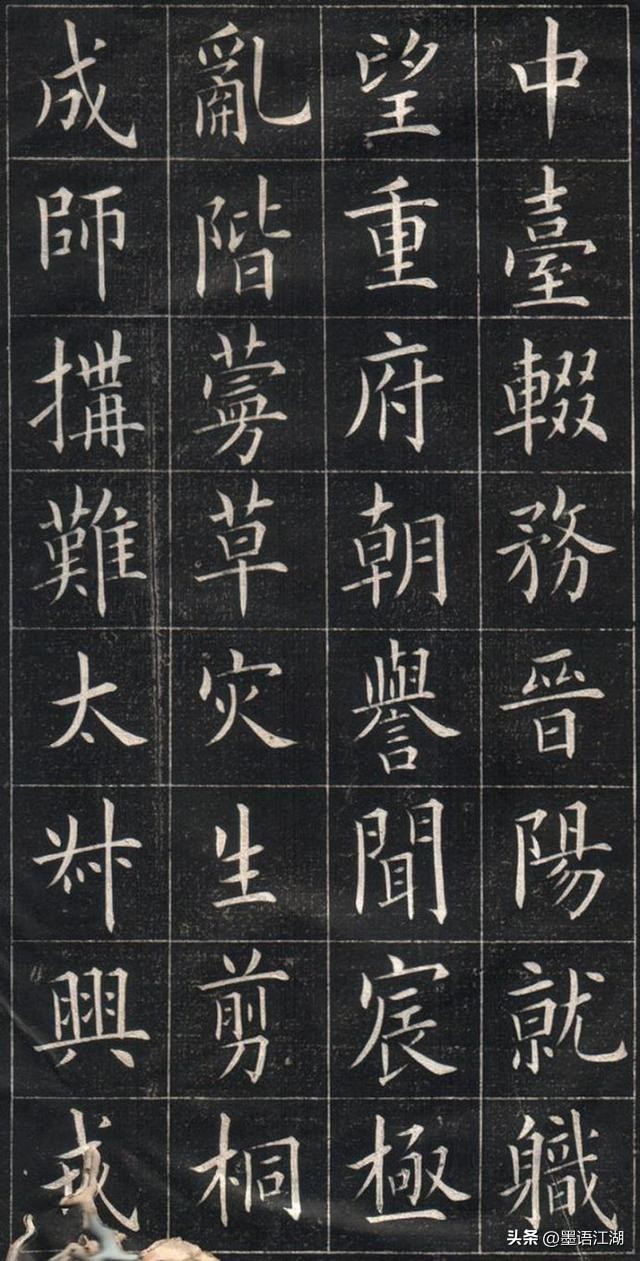 中臺輟務晉陽就職
望重府朝譽聞宸極
亂階蔓草灾生剪桐
成師搆難太叔興戎
头条 @墨语江湖